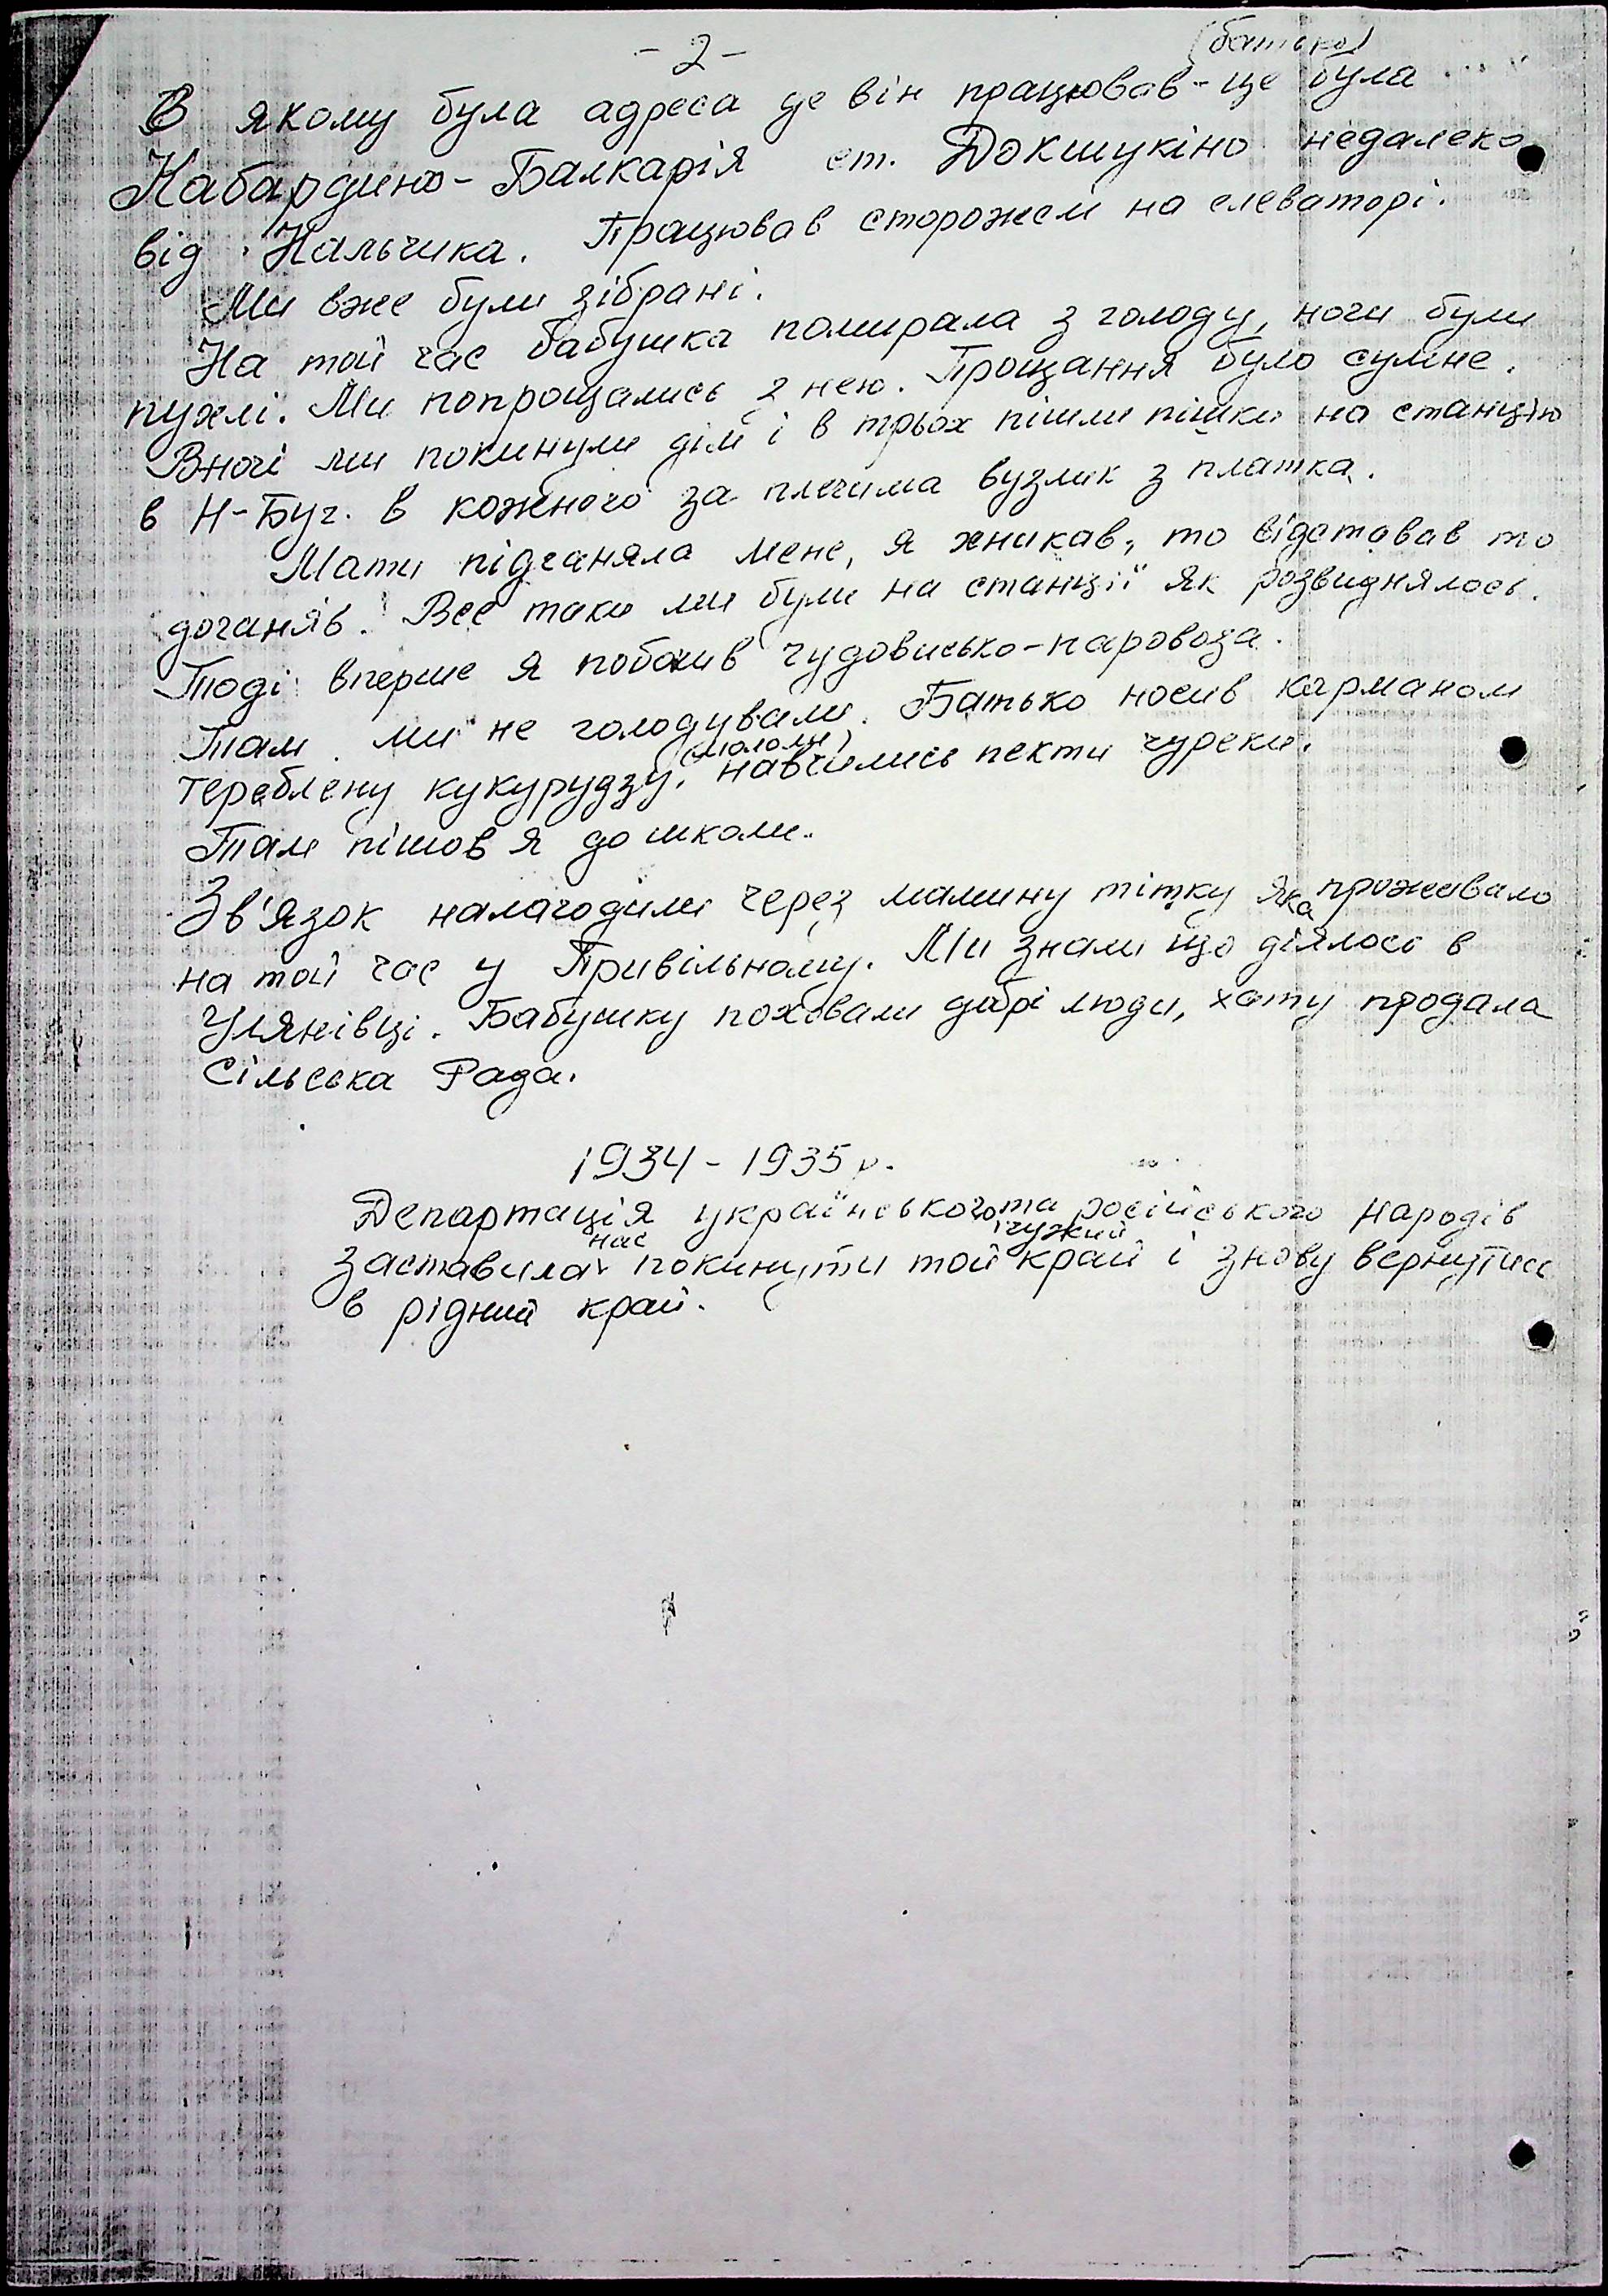 - 2 -
(батько)
В якому була адреса де він працював - це була
Кабардино-Балкарія ст. Докшукіно недалеко
від Нальчика. Працював сторожем на елеваторі.
Ми вже були зібрані.
На той час бабушка помирала з голоду, ноги були
пухлі. Ми попрощались з нею. Прощання було сумне.
Вночі ми покинули дім і в трьох пішли пішки на станцію
в Н-Буг. в кожного за плечима вузлик з платка.
Мати підганяла мене, я хникав, то відставав то
доганяв. Все таки ми були на станції як розвиднялось.
Тоді вперше я побачив чудовисько-паровоза.
Там ми не голодували. Батько носив карманом
(мололи)
тереблену кукурудзу. навчились пекти чуреки.
Там пішов я до школи.
Зв'язок налагодили через мамину тітку яка проживало
на той час у Привільному. Ми знали що діялось в
Улянівці. Бабушку поховали добрі люди, хату продала
Сільська Рада.
1934 - 1935 р.
Департація українського та російського народів
нас чужий
заставила покинути той край і знову вернутись
в рідний край.